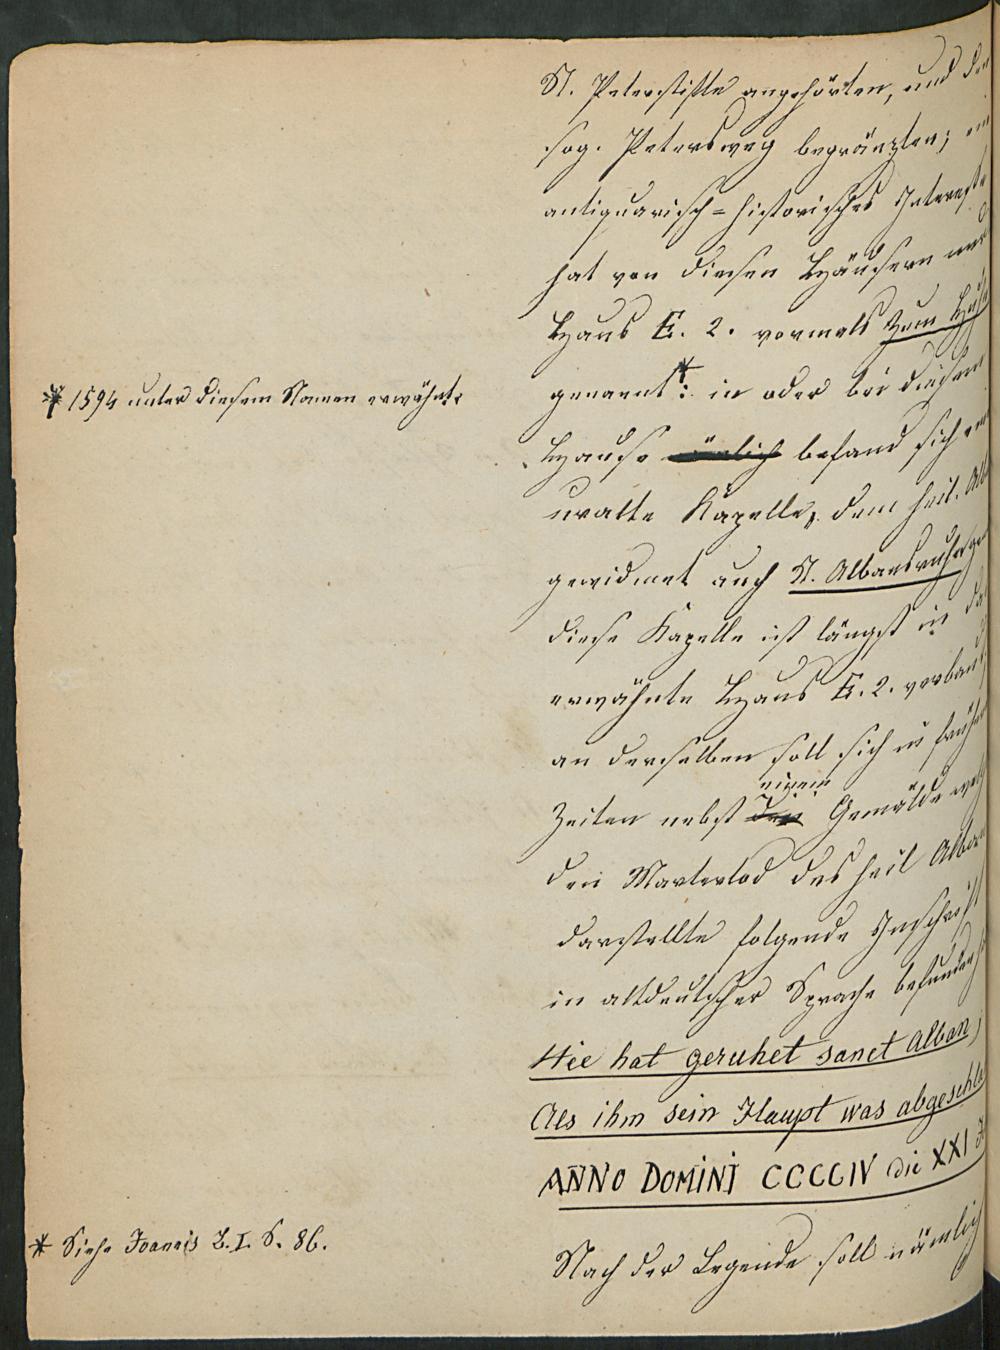 St. Peterstifte angehörten, und den
sog. Petersweg begränzten; ein
antiquarisch=historisches Interesse
hat von diesen Häusern nur
Haus E. 2. vormals zum
* 1594 unter diesem Namen erwähnt.
genannt*: in oder bei diesem
Hause befand sich
uralte Kapelle, dem heil. Alb
gewidmet auch St. Albansruhe
diese Kapelle ist längst in das
erwähnte Haus E. 2. verbaut;
an derselben soll sich in früh
einem
Zeiten nebst Gemälde
den Martertod des heil Alban
darstellte folgende Inschrift
in altdeutscher Sprache befunden
Hie hat geruhet sanct Alban,
Als ihm sein Haupt was abgeschla
ANNO DOMINI CCCCIV die XXI
* Siehe Joannis B. I. S. 86.
Nach der Legende soll nämlich